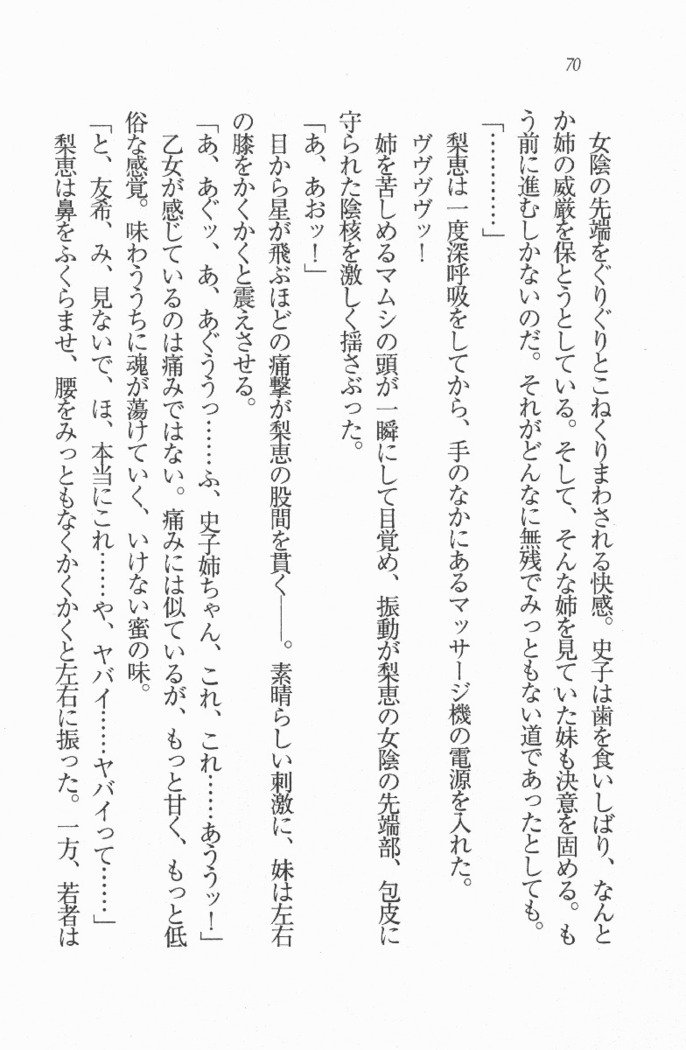 70
女陰の先端をぐりぐりとこねくりまわされる快感。史子は歯を食いしばり、なんと
か姉の威厳を保とうとしている。そして、そんな姉を見ていた妹も決意を固める。も
う前に進むしかないのだ。それがどんなに無残でみっともない道であったとしても。
「…………」
梨恵は一度深呼吸をしてから、手のなかにあるマッサージ機の電源を入れた。
ヴヴヴヴッ！
姉を苦しめるマムシの頭が一瞬にして目覚め、振動が梨恵の女陰の先端部、包皮に
守られた陰核を激しく揺さぶった。
「あ、あおッ！」
目から星が飛ぶほどの痛撃が梨恵の股間を貫く――。素晴らしい刺激に、妹は左右
の膝をかくかくと震えさせる。
「あ、あぐッ、あ、あぐううっ……ふ、史子姉ちゃん、これ、これ……あううッ！」
乙女が感じているのは痛みではない。痛みには似ているが、もっと甘く、もっと低
俗な感覚。味わううちに魂が蕩けていく、いけない蜜の味。
「と、友希、み、見ないで、ほ、本当にこれ……や、ヤバイ……ヤバイって……」
梨恵は鼻をふくらませ、腰をみっともなくかくかくと左右に振った。一方、若者は